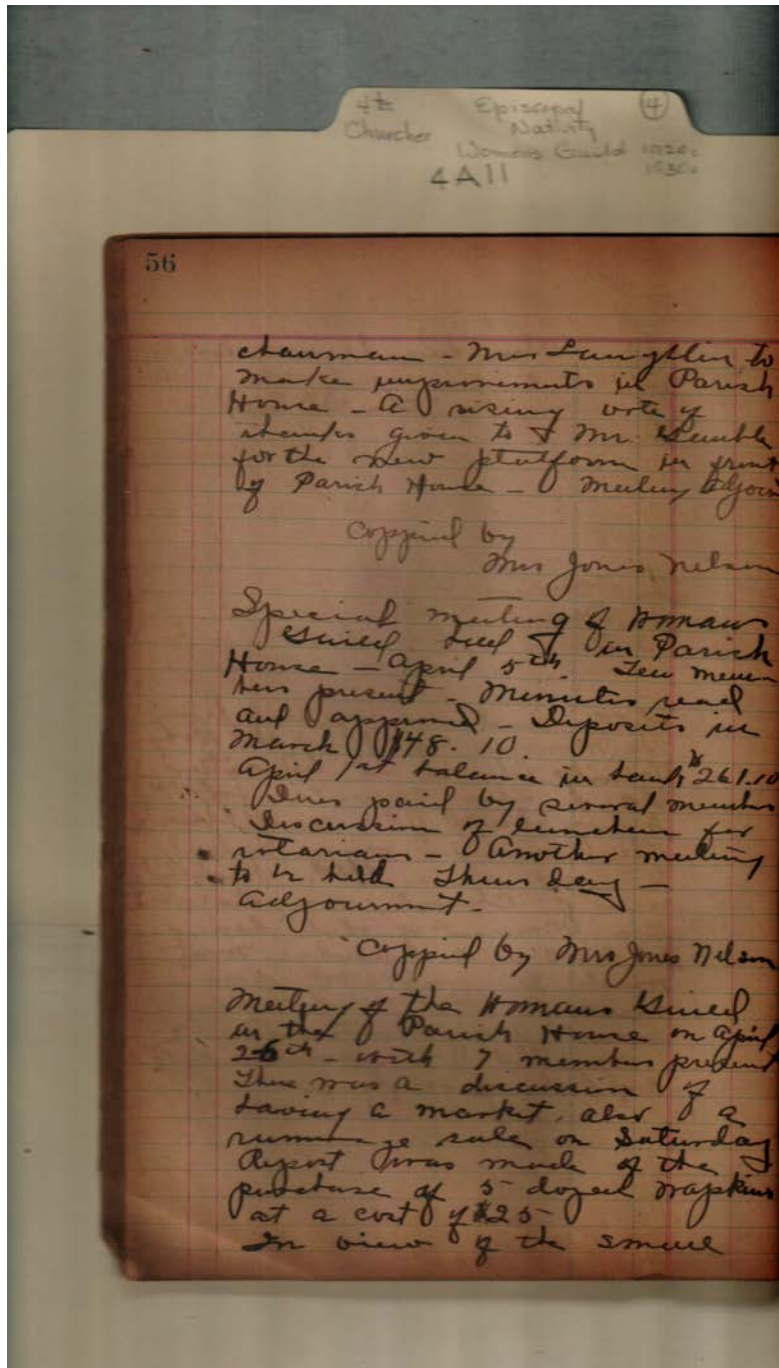 4th Episcopal 4
Churches Nativity
Womens Guild 1920s
4A11 1930s
56
chairman - Mrs Laughlin to
make improvements in Parish
House - A rising vote of
thanks given to Mr.
for the new platform in front
of Parish House - Meeting Adjourn
Coppied by
Mrs Jones Nelson
Special meeting of Womans
Guild held in Parish
House - April 5th. Ten mem-
bers present - Minutes read
and approved - Deposits in
March $48.10.
April 1st balance in bank $261.10
Dues paid by several members
Discussion of luncheon for
rotarians - Another meeting
to be held Thursday -
Adjournment -
Coppied by Mrs Jones Nelson
Meeting of the Womans Guild
in the Parish House on April
26th - with 7 members present
There was a discussion of
having a market, also of a
rummage sale on Saturday
Report was made of the
purchase of 5 dozen napkins
at a cost of $25-
In view of the small